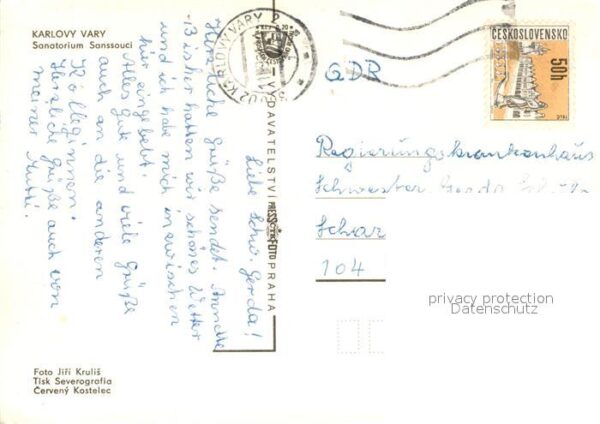 KARLOVY VARY
Sanatorium Sanssouci
Liebe Schw. Gerda!
Herzliche Grüße sendet Annette
B is her hatten wir schönes Wetter
und ich habe mich inzwischen
hier eingelebt.
Alles Gute und viele Grüße
auch an die anderen
Kolleginnen.
Herzliche Grüße auch von
meiner Mutti.
Foto Jiří Kruliš
Tisk Severografia
Červený Kostelec
VYDAVATELSTVÍ PRESSFOTO PRAHA
KARLOVY VARY 2
ČESKOSLOVENSKO
50h
GDR
Regierungskrankenhaus
Schwester Gerda
Schar
104
privacy protection
Datenschutz